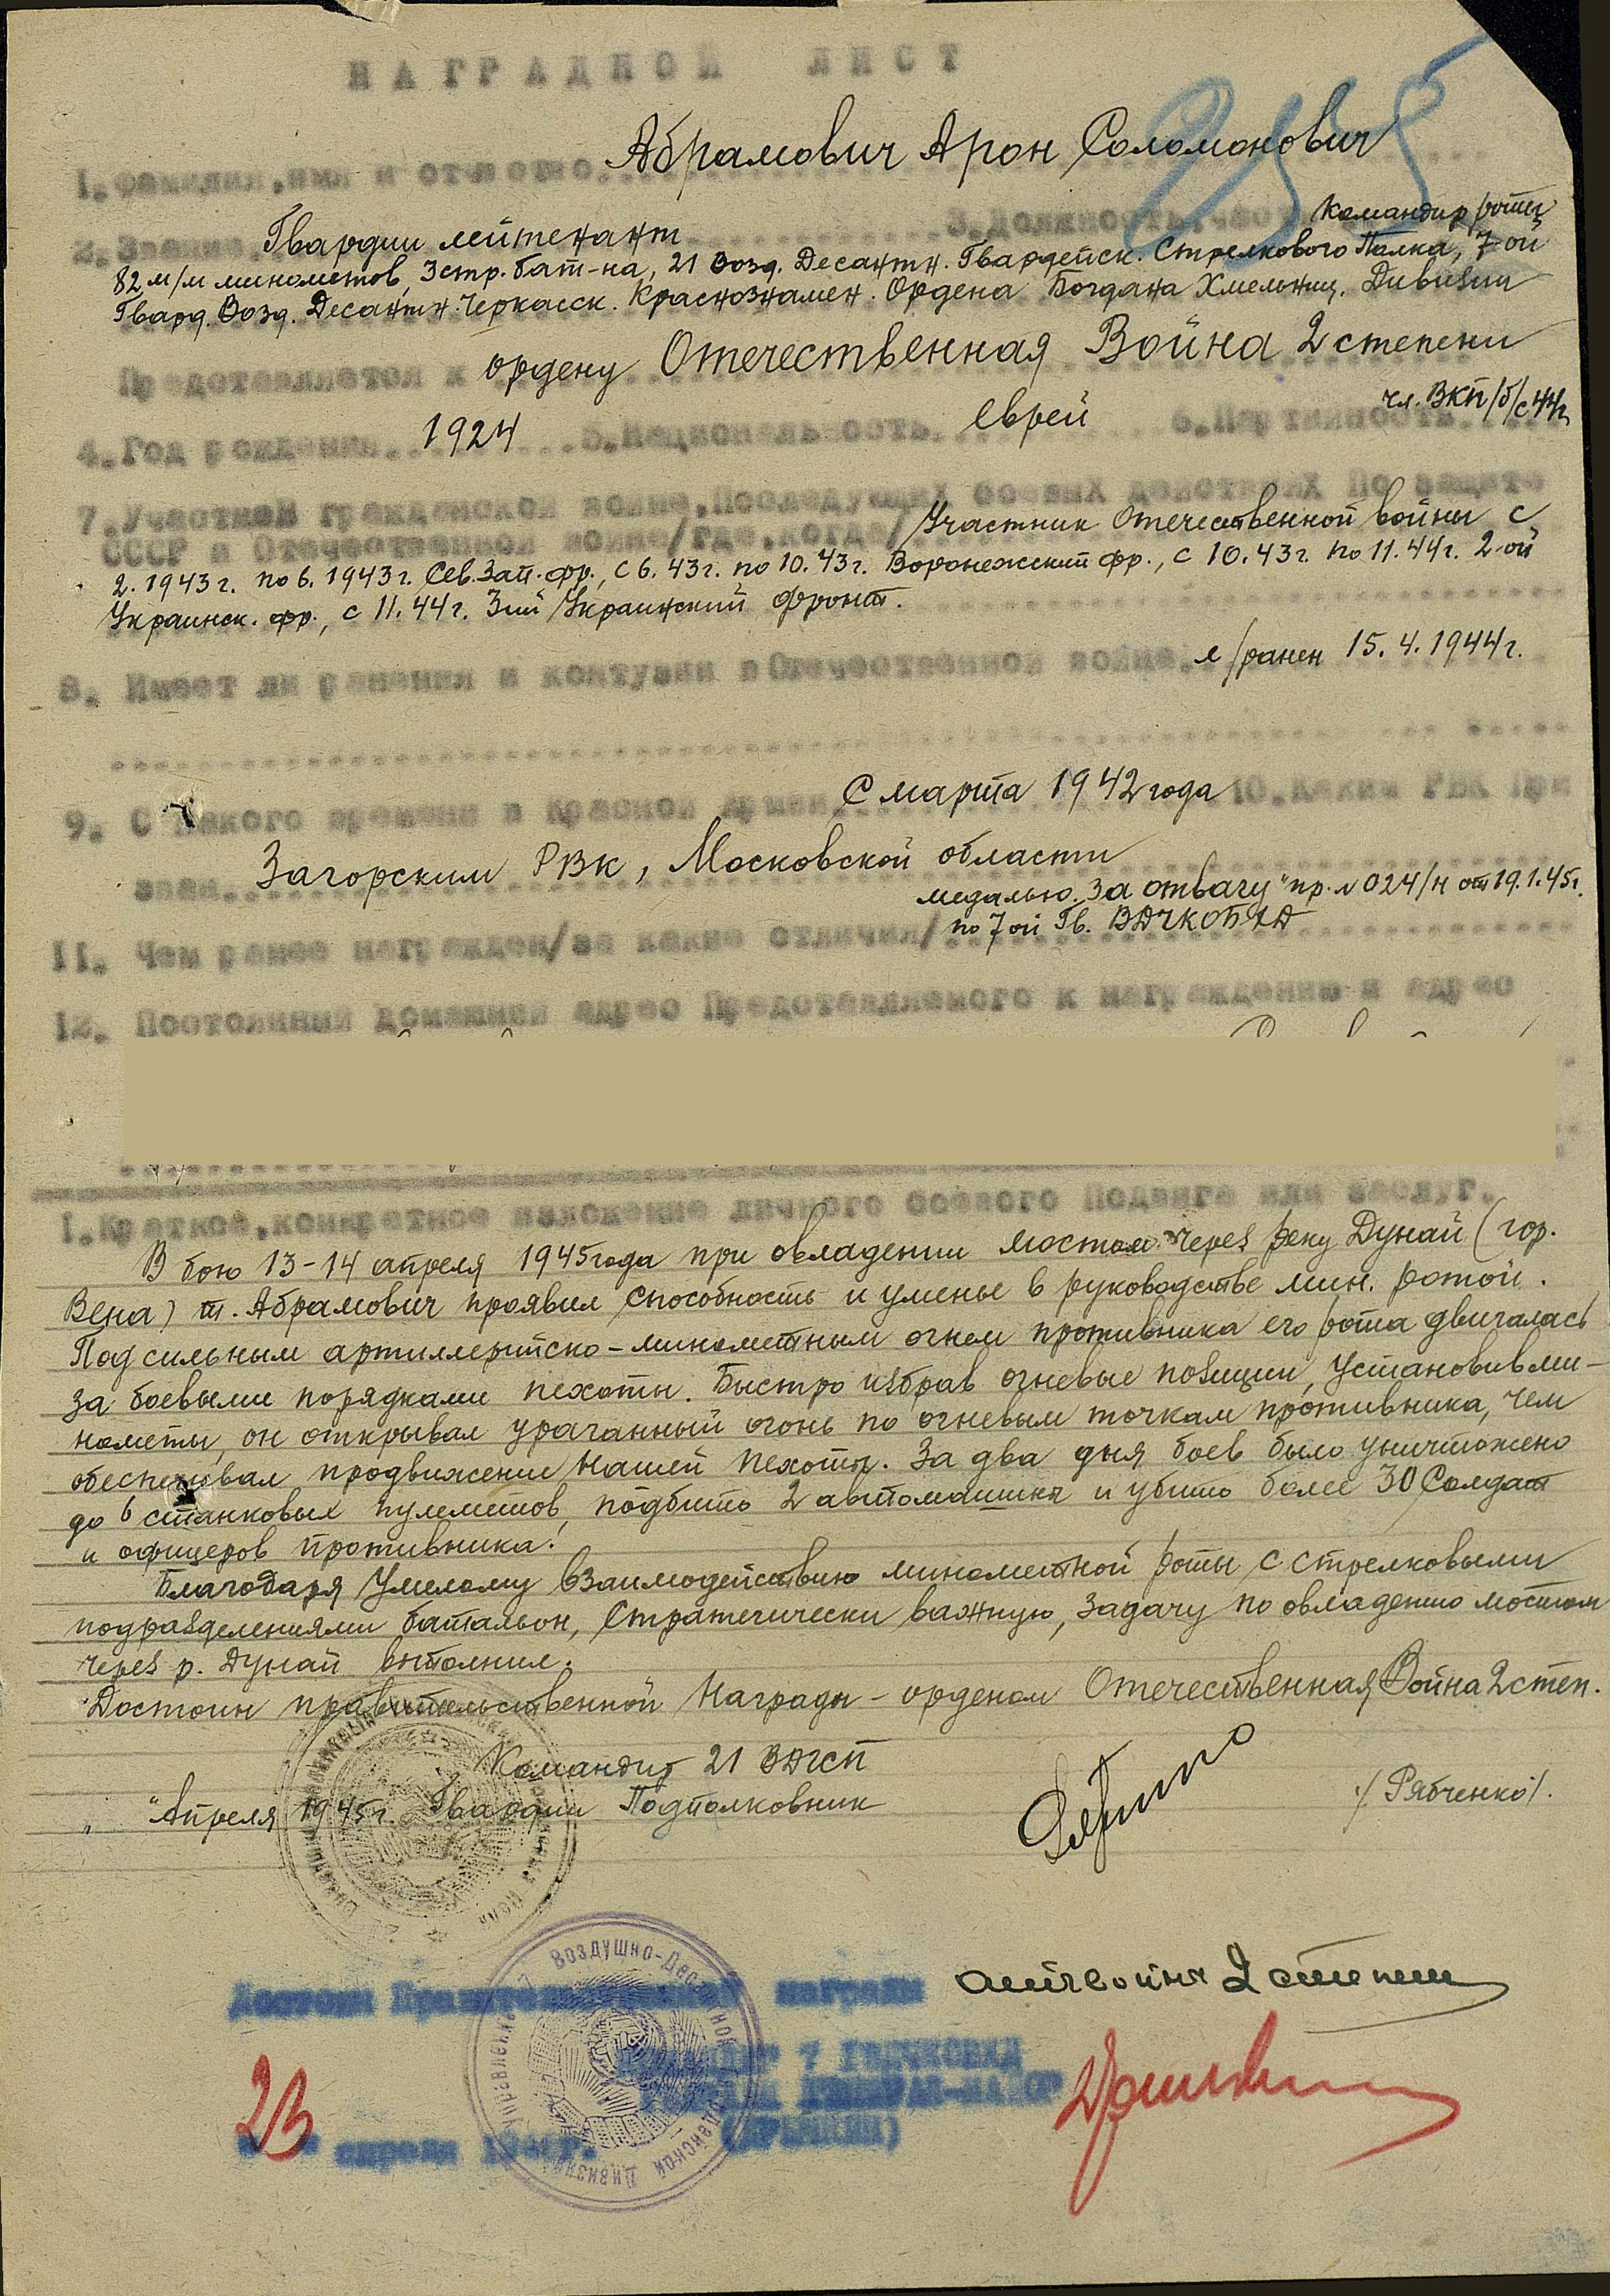 НАГРАДНОЙ ЛИСТ
Абрамович Арон Соломонович
1. Фамилия, имя и отчество
2. Звание Гвардии лейтенант 3. Должность, часть Командир роты
82 м/м минометов, 3 стр. бат-на, 21 Возд. Десантн. Гвардейск. Стрелкового Полка, 7-ой
Гвард. Возд. Десантн. Черкасск. Краснознамен. Ордена Богдана Хмельниц. Дивизии
Представляется к ордену Отечественная Война 2 степени
4. Год рождения 1924 5. Национальность Еврей 6. Партийность чл. ВКП/б/ с 44г.
7. Участник гражданской войне, последующих боевых действиях по защите
СССР и Отечественной войне/где, когда/ Участник Отечественной войны с
2. 1943г. по 6. 1943г. Сев. Зап. фр., с 6. 43г. по 10. 43г. Воронежский фр., с 10. 43г. по 11. 44г. 2-ой
Украинск. фр., с 11. 44г. 3ий Украинский фронт.
8. Имеет ли ранения и контузии в Отечественной войне л/ранен 15. 4. 1944г.
9. С какого времени в Красной армии С марта 1942 года 10. Каким РВК при
зван Загорским РВК, Московской области
медалью "За отвагу" пр. № 024/н от 19.1.45г.
11. Чем ранее награжден/за какие отличия/ по 7ой Гв. ВДЧКОБХД
12. Постоянный домашний адрес Представляемого к награждению и адрес
1. Краткое, конкретное изложение личного боевого Подвига или заслуг.
В бою 13-14 апреля 1945 года при овладении мостом через реку Дунай (гор.
Вена) т. Абрамович проявил способность и уменье в руководстве мин. ротой.
Под сильным артиллерийско-минометным огнем противника его рота двигалась
за боевыми порядками пехоты. Быстро избрав огневые позиции, установив ми-
нометы, он открывал ураганный огонь по огневым точкам противника, чем
обеспечивал продвижение нашей пехоты. За два дня боев было уничтожено
до 6 станковых пулеметов, подбито 2 автомашины и убито более 30 солдат
и офицеров противника.
Благодаря умелому взаимодействию минометной роты с стрелковыми
подразделениями батальон, стратегически важную, задачу по овладению мостом
через р. Дунай выполнил.
Достоин правительственной награды - орденом Отечественная Война 2 степ.
Командир 21 ВДГСП
" " Апреля 1945г. Гвардии Подполковник /Рябченко/.
Достоин Правительственной награды отечвойны 2 степени
Командир 7 ГВДЧКОБХД
Гвардии генерал-майор
23 апреля 194 г. (Дрычкин)